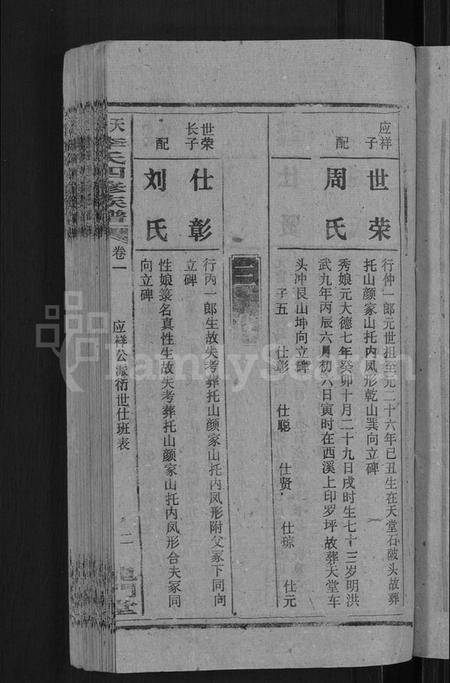 应祥子
世荣
行仲一郎元世祖至元二十六年己丑生在天堂石陂头故葬
托山颜家山托内凤形乾山巽向立碑
配
周氏
秀娘元大德七年癸卯十月二十九日戌时生七十三岁明洪
武九年丙辰六月初六日寅时在西溪上印罗坪故葬天堂车
头冲艮山坤向立碑
子五 仕彰 仕聪 仕贤 仕琼 仕元
世荣长子
仕彰
行内一郎生故失考葬托山颜家山托内凤形附父冢下同向
立碑
配
刘氏
性娘箓名真性生故失考葬托山颜家山托内凤形合夫冢同
向立碑
天李氏四修族谱
卷一
应祥公派衍世仕班表
二
FamilySearch